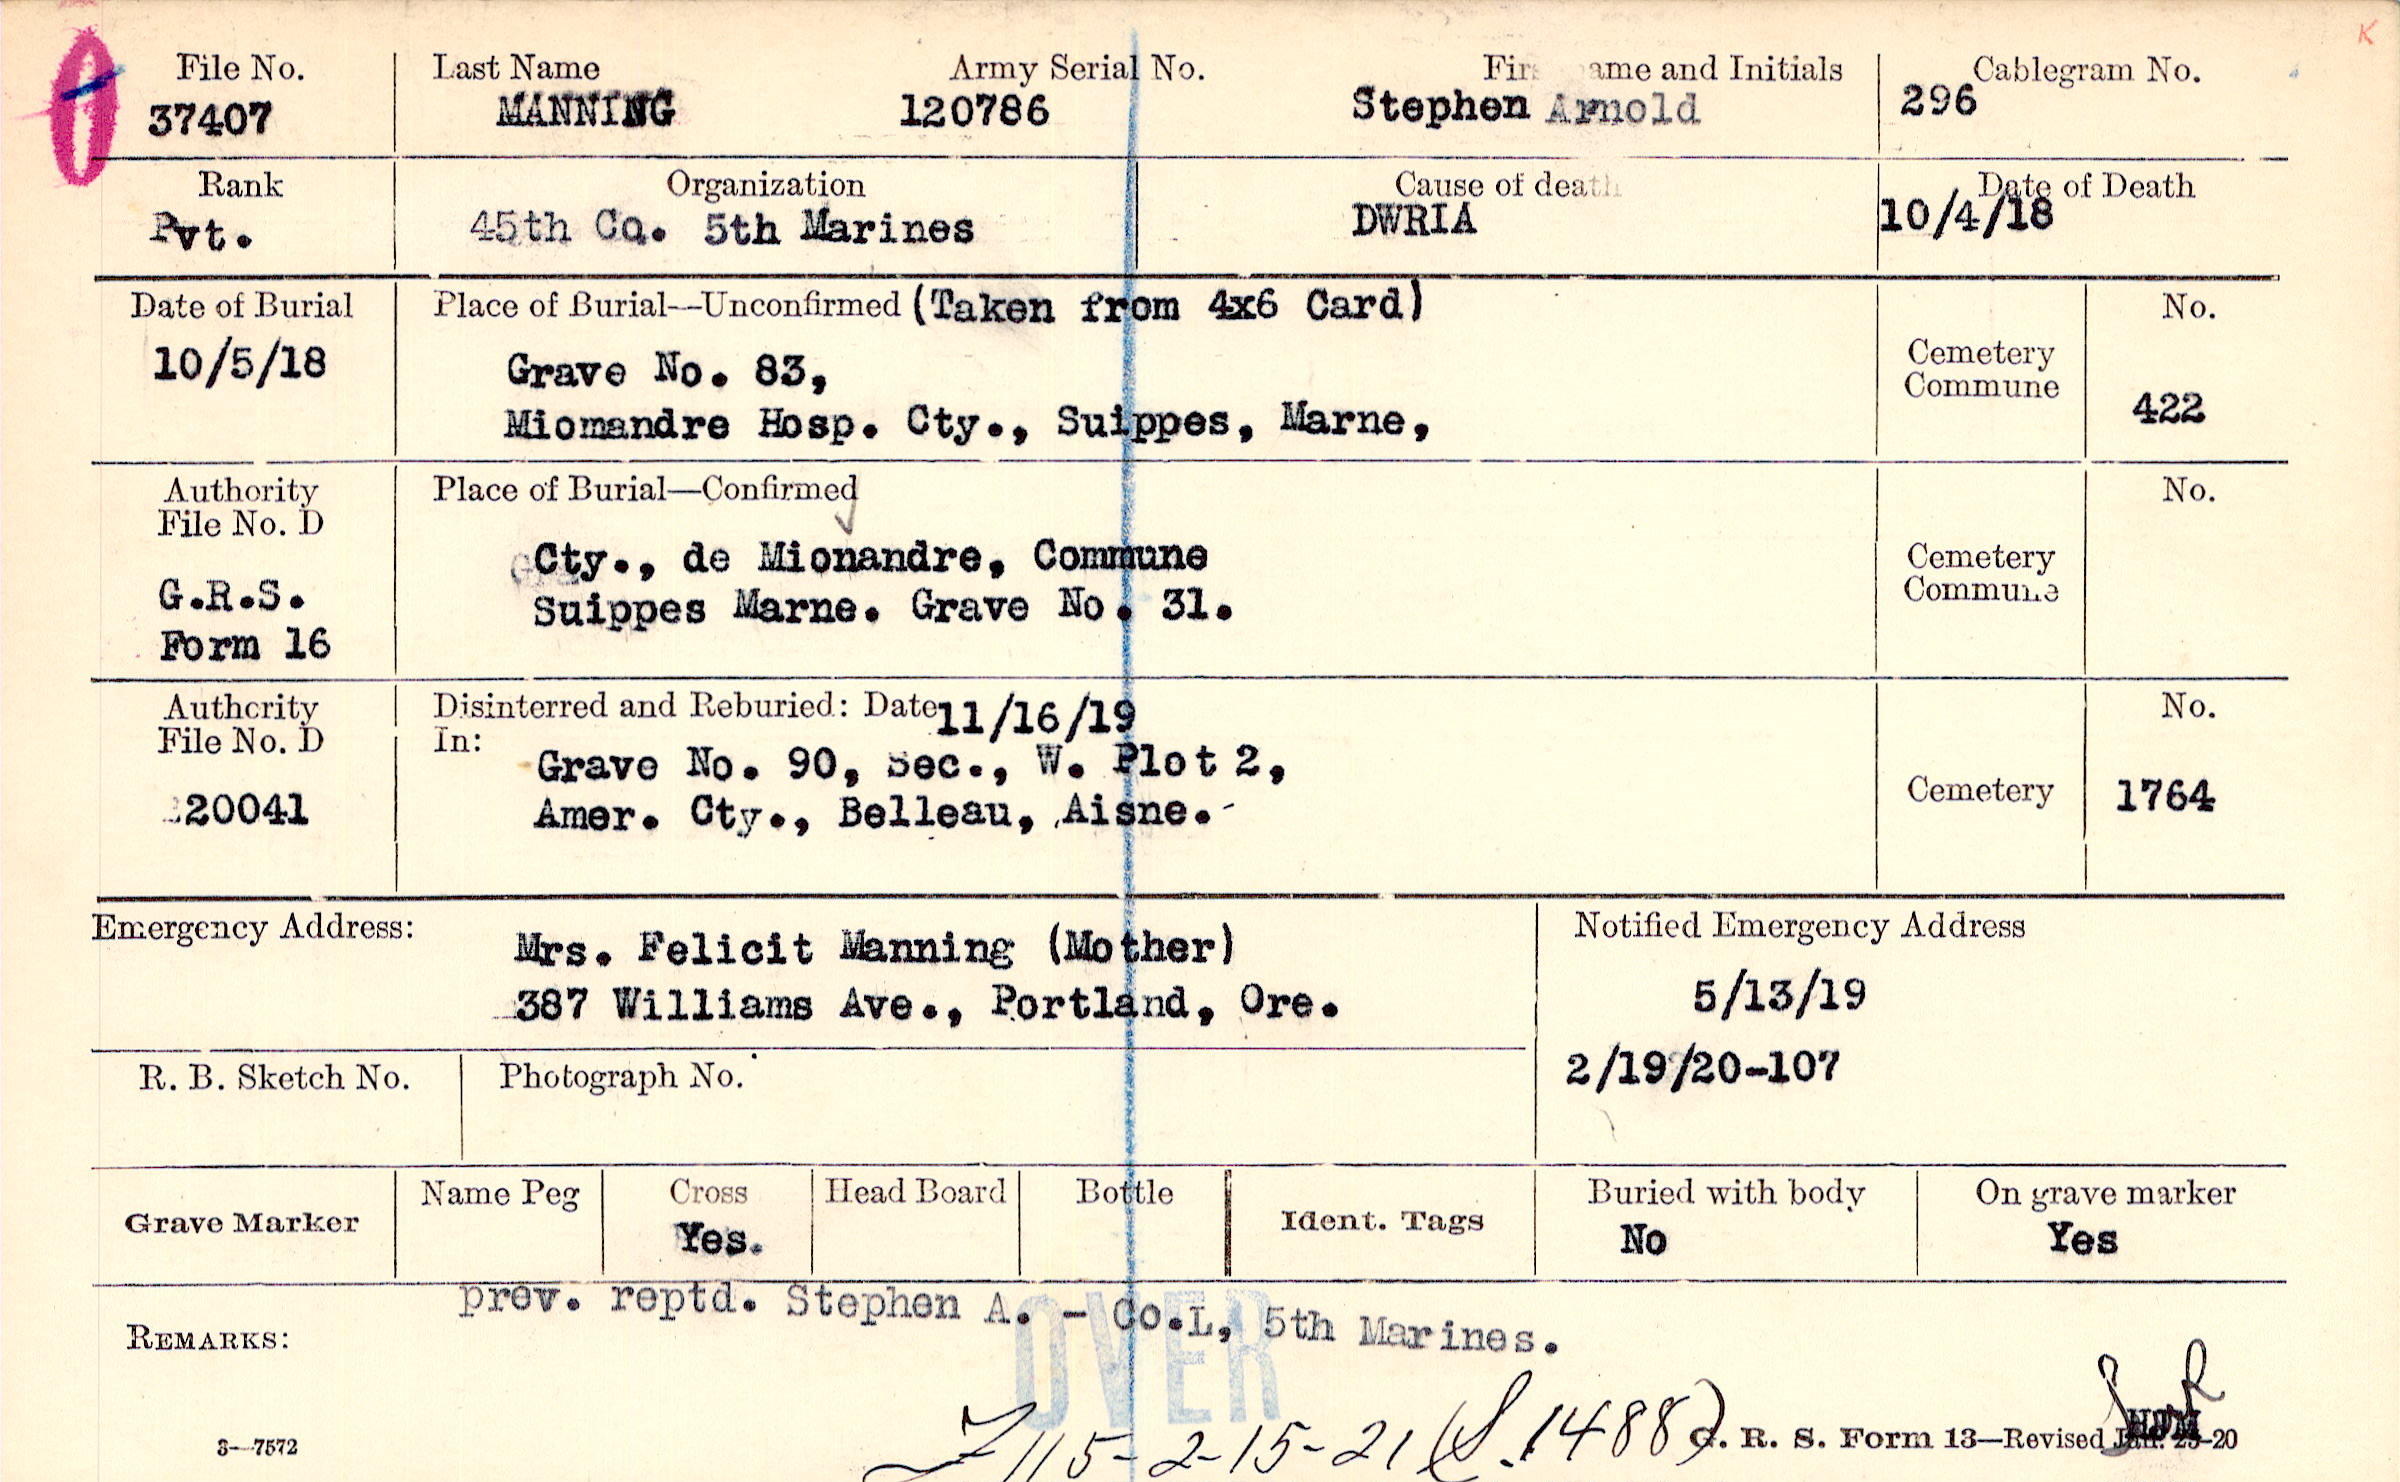 K
File No. Last Name Army Serial No. First name and Initials Cablegram No.
37407 MANNING 120786 Stephen Arnold 296
Rank Organization Cause of death Date of Death
Pvt. 45th Co. 5th Marines DWRIA 10/4/18
Date of Burial Place of Burial—Unconfirmed (Taken from 4x6 Card) No.
10/5/18 Grave No. 83, Cemetery
Commune
Miomandre Hosp. Cty., Suippes, Marne, 422
Authority Place of Burial—Confirmed No.
File No. D
Cty., de Mionandre, Commune Cemetery
G.R.S. Suippes Marne. Grave No. 31. Commune
Form 16
Authority Disinterred and Reburied: Date 11/16/19 No.
File No. D In:
Grave No. 90, Sec., W. Plot 2,
20041 Amer. Cty., Belleau, Aisne.- Cemetery 1764
Emergency Address: Mrs. Felicit Manning (Mother) Notified Emergency Address
387 Williams Ave., Portland, Ore. 5/13/19
R. B. Sketch No. Photograph No. 2/19/20-107
Grave Marker Name Peg Cross Head Board Bottle Ident. Tags Buried with body On grave marker
Yes. No Yes
prev. reptd. Stephen A. - Co.L, 5th Marines.
REMARKS:
OVER
115-2-15-21 (S.1488)
3—7572 G. R. S. Form 13—Revised Jan. 23-20